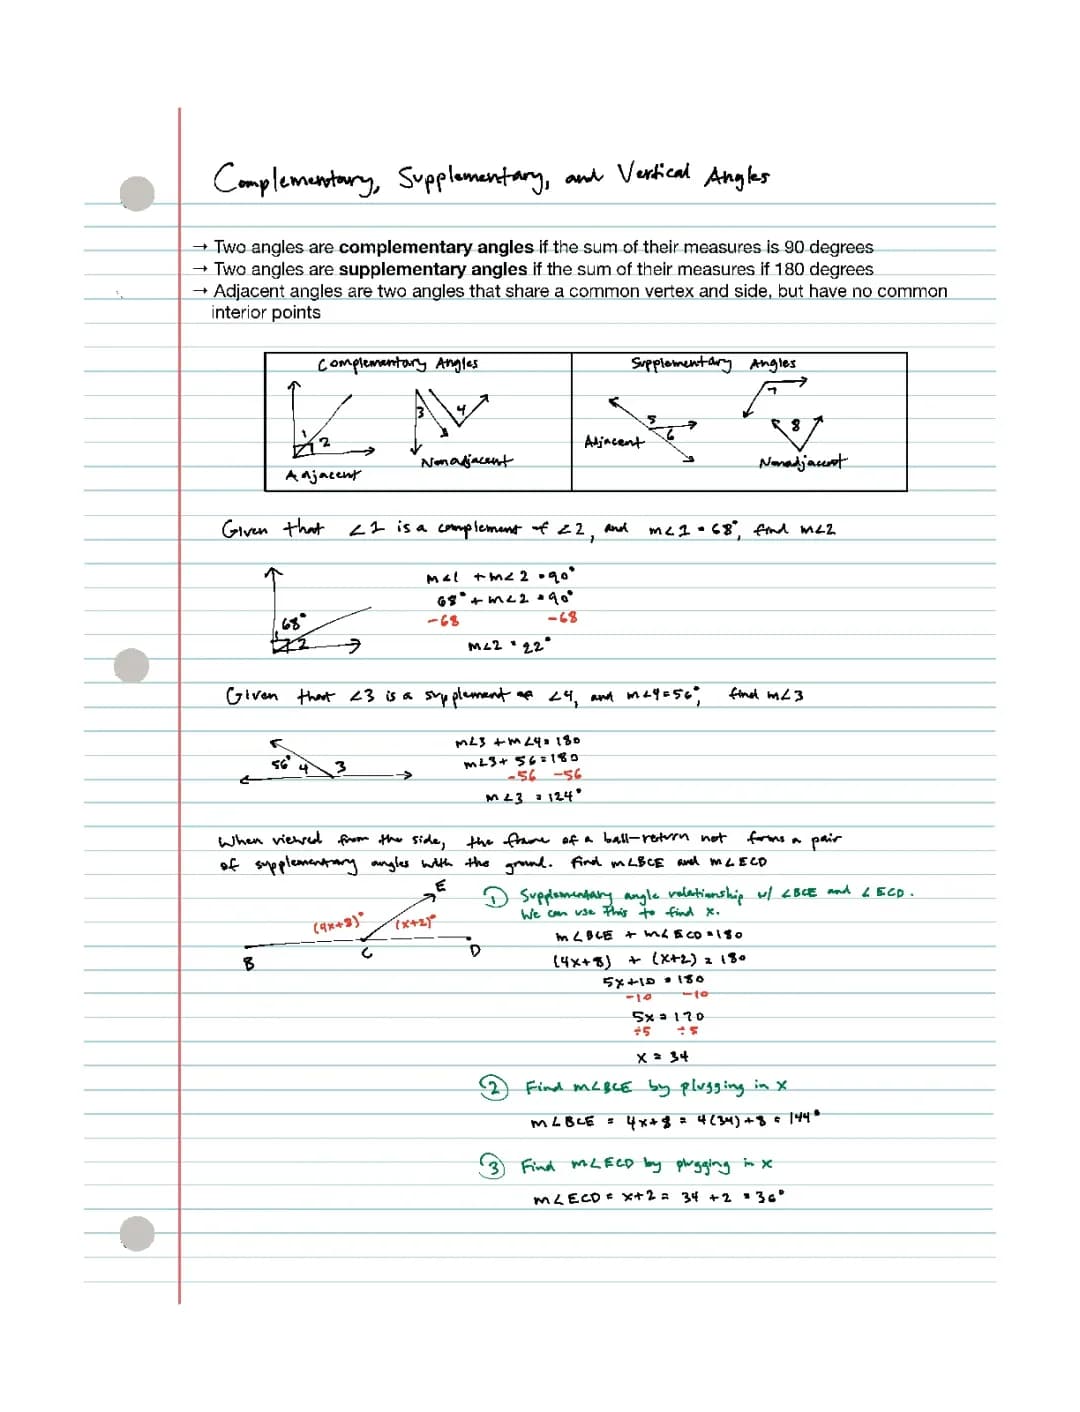 Complementary, Supplementary, and Vertical Angles
→ Two angles are complementary angles if the sum of their measures is 90 degrees
→ Two angles are supplementary angles if the sum of their measures if 180 degrees
→ Adjacent angles are two angles that share a common vertex and side, but have no common
interior points
Complementary Angles
1
2
Adjacent
3
4
Nonadjacent
Supplementary Angles
5
6
Adjacent
7
8
Nonadjacent
Given that ∠1 is a complement of ∠2, and m∠1 = 68°, find m∠2
68°
2
m∠1 + m∠2 = 90°
68° + m∠2 = 90°
-68 -68
m∠2 = 22°
Given that ∠3 is a supplement of ∠4, and m∠4=56°, find m∠3
56° 4 3
m∠3 + m∠4 = 180
m∠3 + 56 = 180
-56 -56
m∠3 = 124°
When viewed from the side, the frame of a ball-return net forms a pair
of supplementary angles with the ground. Find m∠BCE and m∠ECD
E
(4x+8)° (x+2)°
B C D
① Supplementary angle relationship w/ ∠BCE and ∠ECD.
We can use this to find x.
m∠BCE + m∠ECD = 180
(4x+8) + (x+2) = 180
5x+10 = 180
-10 -10
5x = 170
÷5 ÷5
x = 34
② Find m∠BCE by plugging in x
m∠BCE = 4x+8 = 4(34)+8 = 144°
③ Find m∠ECD by plugging in x
m∠ECD = x+2 = 34 + 2 = 36°